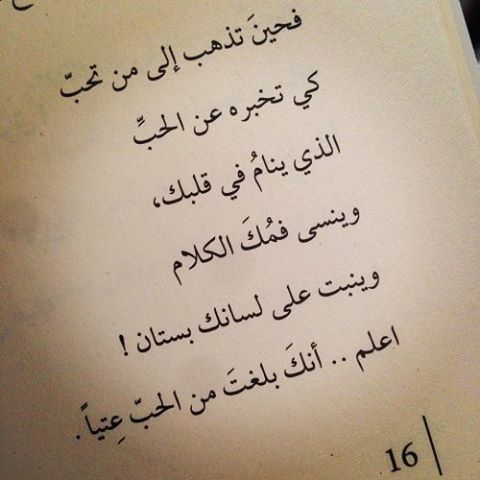 فحينَ تذهب إلى من تحبّ
كي تخبره عن الحبِّ
الذي ينامُ في قلبك،
وينسى فمُكَ الكلام
وينبت على لسانك بستان !
اعلم .. أنكَ بلغتَ من الحبّ عِتياً.
16